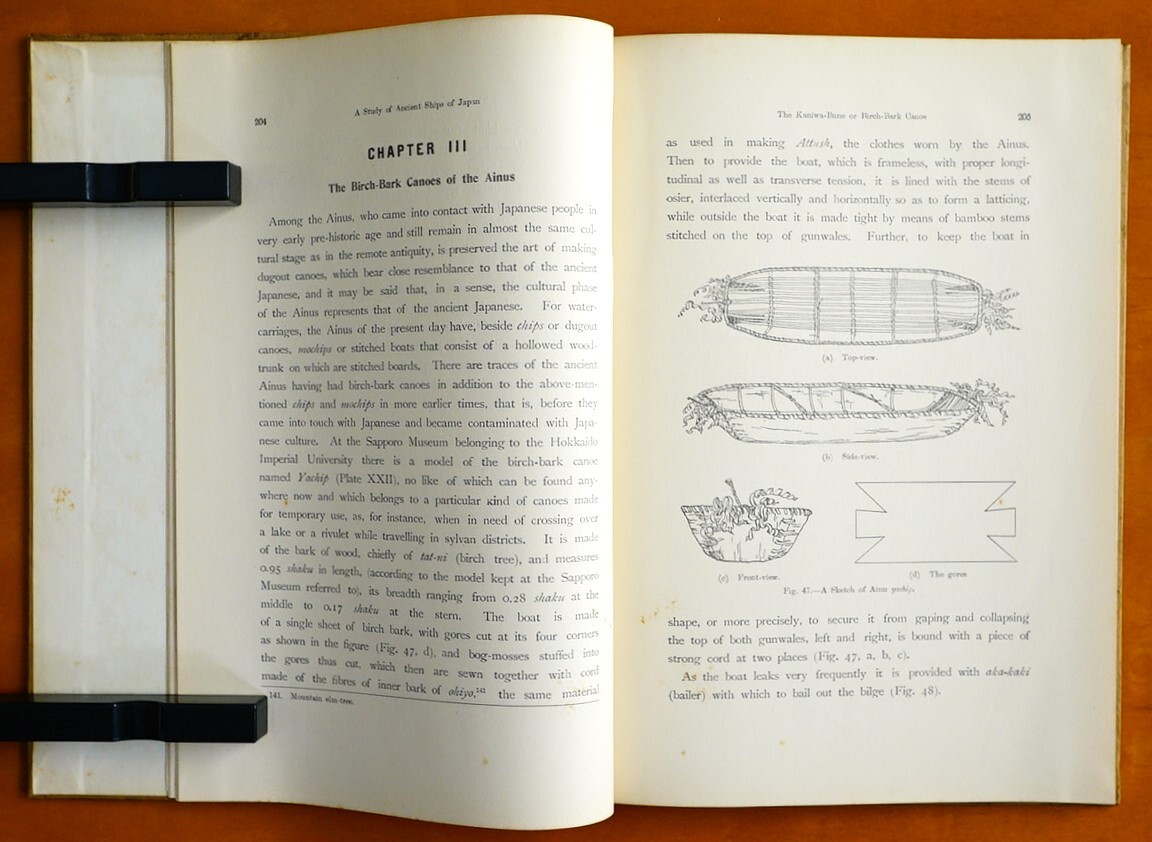 204
A Study of Ancient Ships of Japan
CHAPTER III
The Birch-Bark Canoes of the Ainus
Among the Ainus, who came into contact with Japanese people in
very early pre-historic age and still remain in almost the same cul-
tural stage as in the remote antiquity, is preserved the art of making
dugout canoes, which bear close resemblance to that of the ancient
Japanese, and it may be said that, in a sense, the cultural phase
of the Ainus represents that of the ancient Japanese. For water-
carriages, the Ainus of the present day have, beside chips or dugout
canoes, mochips or stitched boats that consist of a hollowed wood-
trunk on which are stitched boards. There are traces of the ancient
Ainus having had birch-bark canoes in addition to the above-men-
tioned chips and mochips in more earlier times, that is, before they
came into touch with Japanese and became contaminated with Japa-
nese culture. At the Sapporo Museum belonging to the Hokkaido
Imperial University there is a model of the birch-bark canoe
named Yachip (Plate XXII), no like of which can be found any-
where now and which belongs to a particular kind of canoes made
for temporary use, as, for instance, when in need of crossing over
a lake or a rivulet while travelling in sylvan districts. It is made
of the bark of wood, chiefly of tat-ni (birch tree), and measures
0.95 shaku in length, (according to the model kept at the Sapporo
Museum referred to), its breadth ranging from 0.28 shaku at the
middle to 0.17 shaku at the stern. The boat is made
of a single sheet of birch bark, with gores cut at its four corners
as shown in the figure (Fig. 47, d), and bog-mosses stuffed into
the gores thus cut, which then are sewn together with cord
made of the fibres of inner bark of ohiyo,¹⁴¹ the same material
141. Mountain elm-tree.
The Kaniwa-Bune or Birch-Bark Canoe
205
as used in making Attush, the clothes worn by the Ainus.
Then to provide the boat, which is frameless, with proper longi-
tudinal as well as transverse tension, it is lined with the stems of
osier, interlaced vertically and horizontally so as to form a latticing,
while outside the boat it is made tight by means of bamboo stems
stitched on the top of gunwales. Further, to keep the boat in
(a) Top-view.
(b) Side-view.
(c) Front-view.
(d) The gores
Fig. 47.—A Sketch of Ainu yachip.
shape, or more precisely, to secure it from gaping and collapsing
the top of both gunwales, left and right, is bound with a piece of
strong cord at two places (Fig. 47, a, b, c).
As the boat leaks very frequently it is provided with aka-kaki
(bailer) with which to bail out the bilge (Fig. 48).